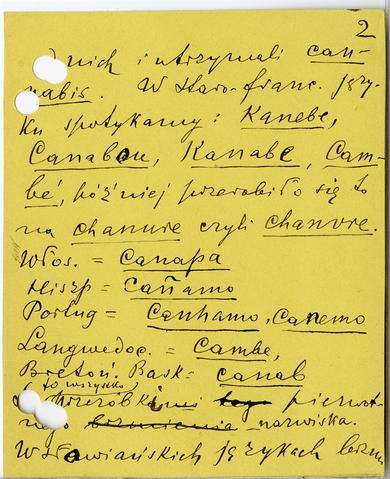 2
nich i utrzymali can-
nabis. W staro-franc. języ-
ku spotykamy: Kanebe,
Canabou, Kanabe, Cam-
bé, później przerobiło się to
na chanure czyli chanvre.
Włos. = Canapa
Hiszp = Cañamo
Portug = Canhamo, Canemo
Langwedoc. = Cambe,
Bretoń. Bask = canab
(to wszystko)
przeróbkami tego pierwot-
nego brzmienia nazwiska.
W Słowiańskich językach brzm